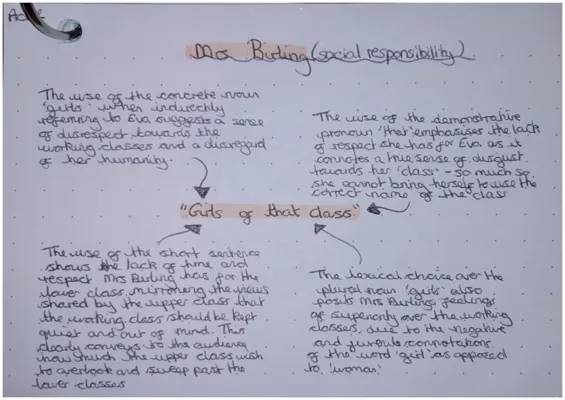 Act 1
Mrs Birling (social responsibility)
The use of the concrete noun
'girls' when indirectly
referring to Eva suggests a sense
of disrespect towards the
working classes and a disregard
of her humanity.
The use of the demonstrative
pronoun 'that' emphasises the lack
of respect she has for Eva as it
connotes a true sense of disgust
towards her 'class' - so much so
she cannot bring herself to use the
correct name of the class
"Girls of that class"
The use of the short sentence
shows the lack of time and
respect Mrs Birling has for the
lower class, mirroring the views
shared by the upper class that
the working class should be kept
quiet and out of mind. This
clearly conveys to the audience
how much the upper class wish
to overlook and sweep past the
lower classes
The lexical choice over the
plural noun 'girls' also
posits Mrs Birling's feelings
of superiority over the working
classes, due to the negative
and juvenile connotations
of the word 'girl' as opposed
to 'woman'